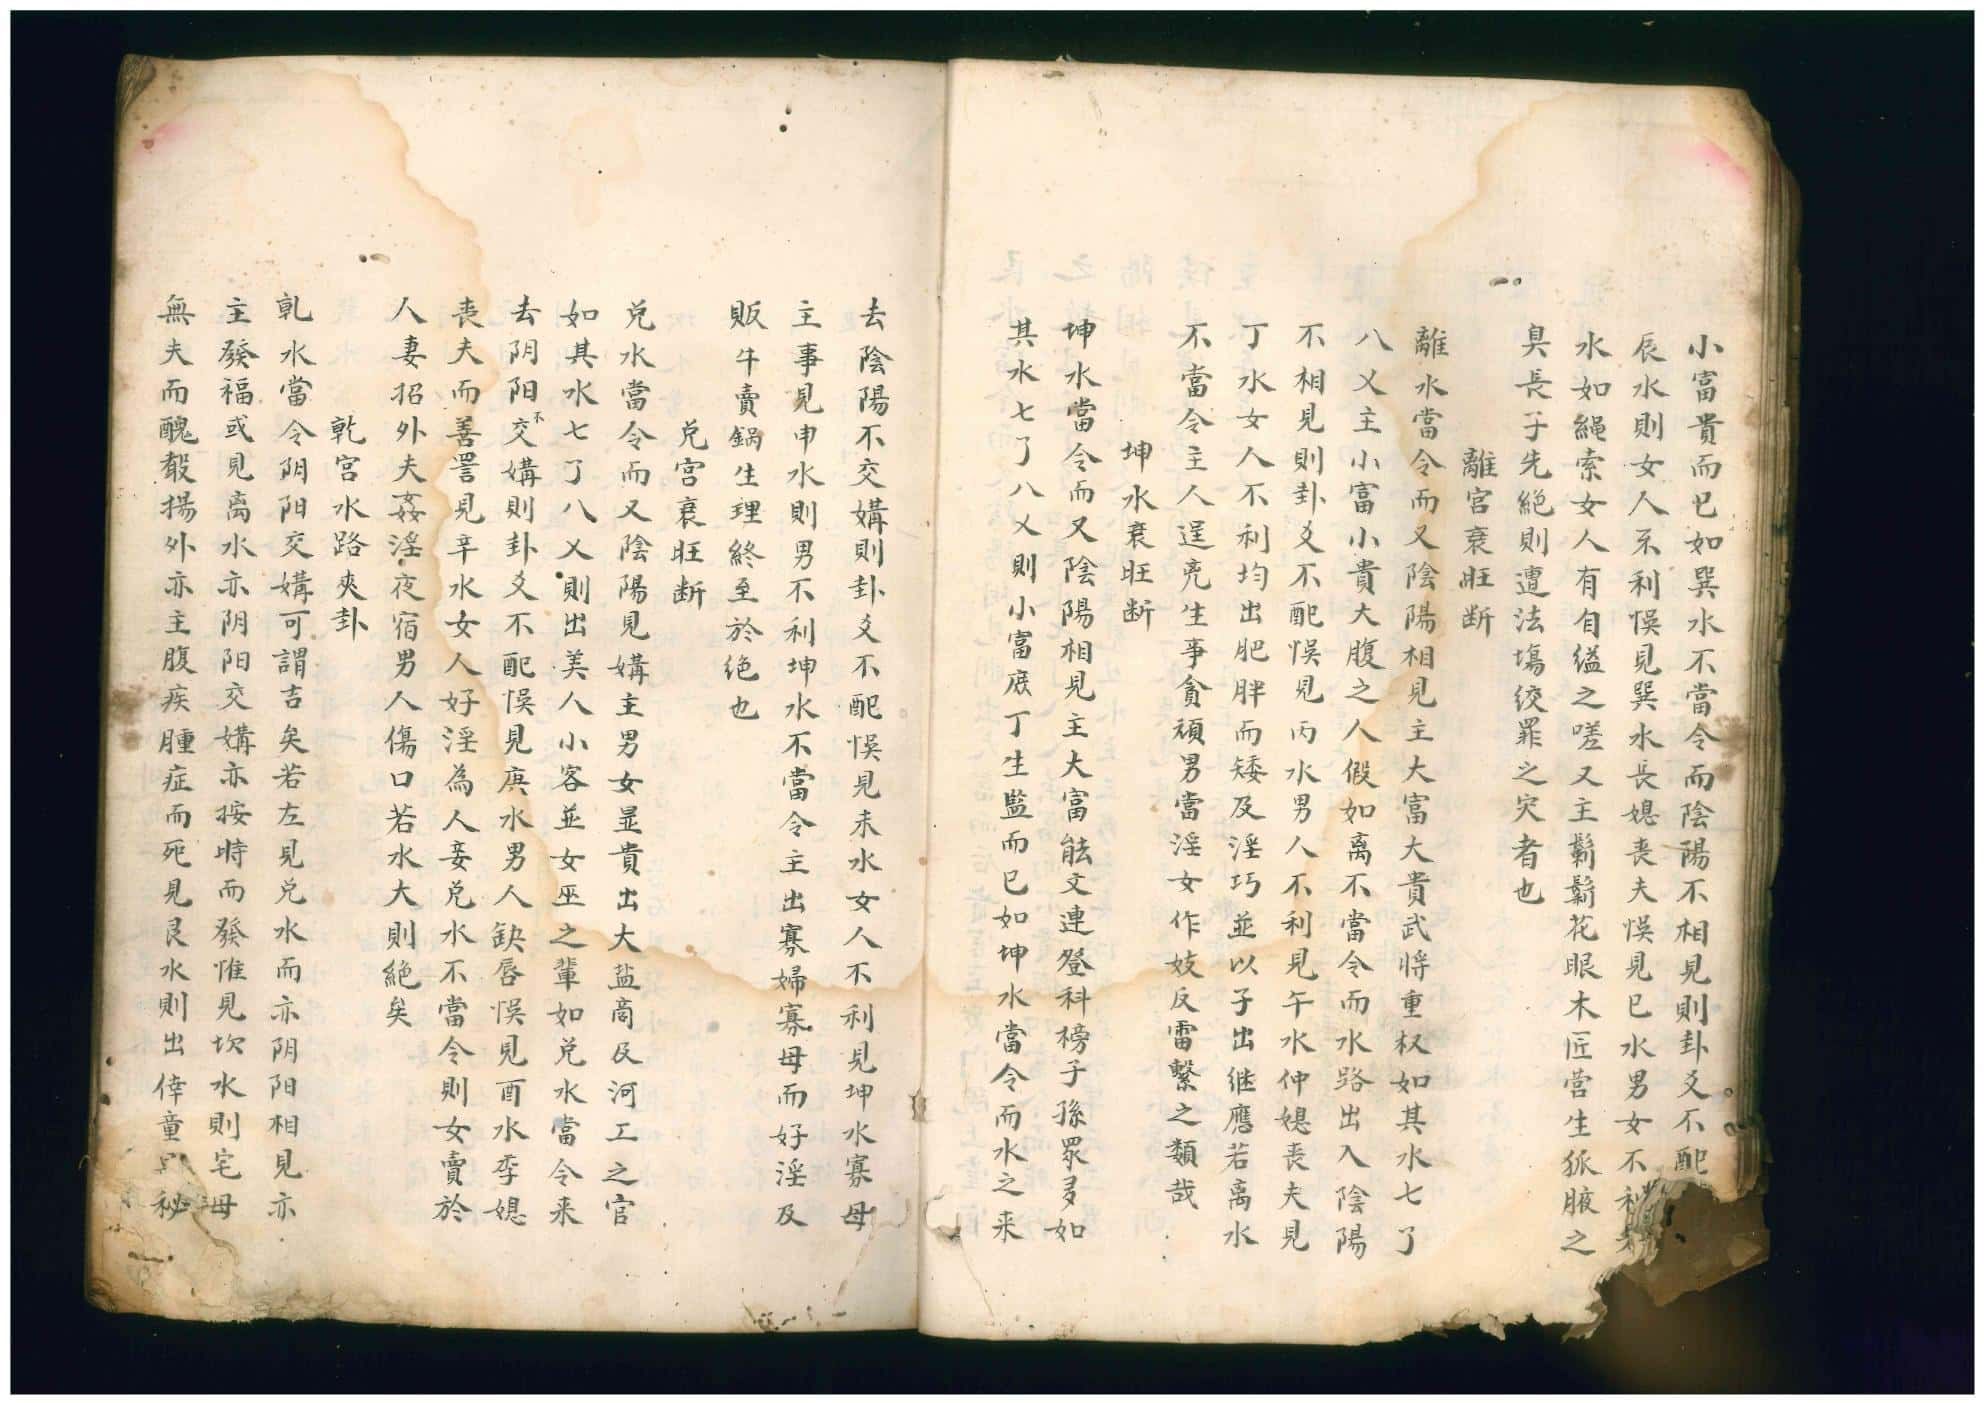 小富貴而已如巽水不當令而陰陽不相見則卦爻不配
辰水則女人不利悮見巽水長媳喪夫悮見巳水男女不
水如繩索女人有自縊之嗟又主鬍鬚花眼木匠营生狐腋之
臭長子先絕則遭法塲绞罪之灾者也
離宮衰旺断
離水當令而又陰陽相見主大富大貴武将重权如其水七了
八乂主小富小貴大腹之人假如离不當令而水路出入陰陽
不相見則卦爻不配悮見丙水男人不利見午水仲媳喪夫見
丁水女人不利均出肥胖而矮及淫巧並以子出继應若离水
不當令主人逞亮生事貪頑男當淫女作妓反雷擊之類哉
坤水衰旺断
坤水當令而又陰陽相見主大富能文連登科榜子孫眾多如
其水七了八乂則小富庶丁生監而已如坤水當令而水之来
去陰陽不交媾則卦爻不配悮見未水女人不利見坤水寡母
主事見申水則男不利坤水不當令主出寡婦寡母而好淫及
販牛賣鍋生理終至於绝也
兑宮衰旺断
兑水當令而又陰陽見媾主男女显貴出大盐商及河工之官
如其水七了八乂則出美人小客並女巫之輩如兑水當令来
去阴阳不交媾則卦爻不配悮見庚水男人缺唇悮見酉水季媳
喪夫而善詈見辛水女人好淫為人妾兑水不當令則女賣於
人妻招外夫姦淫夜宿男人傷口若水大則絕矣
乾宮水路夾卦
乹水當令阴阳交媾可謂吉矣若左見兑水而亦阴阳相見亦
主發福或見离水亦阴阳交媾亦按時而發惟見坎水則宅母
無夫而醜聲揚外亦主腹疾腫症而死見艮水則出倖童